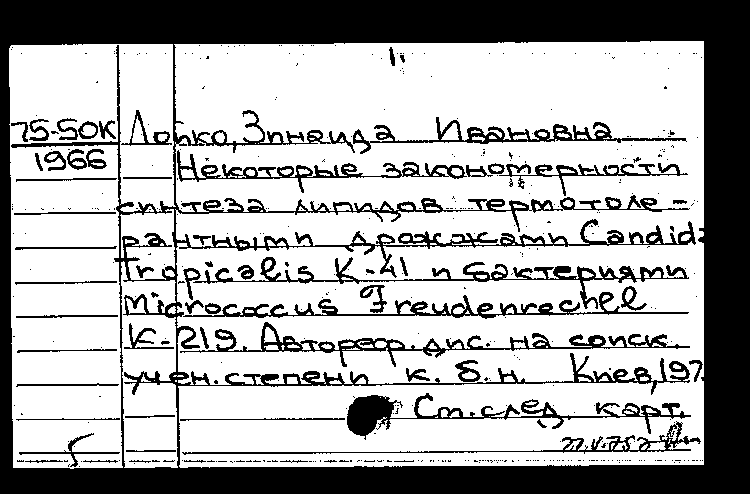 1.
75-50К Лойко, Зинаида Ивановна
1966 Некоторые закономерности
синтеза липидов термотоле-
рантными дрожжами Candida
tropicalis К-41 и бактериями
Micrococcus Freudenrechel
К-219. Автореф. дис. на соиск.
учен. степени к. б. н. Киев, 197
См. след. карт.